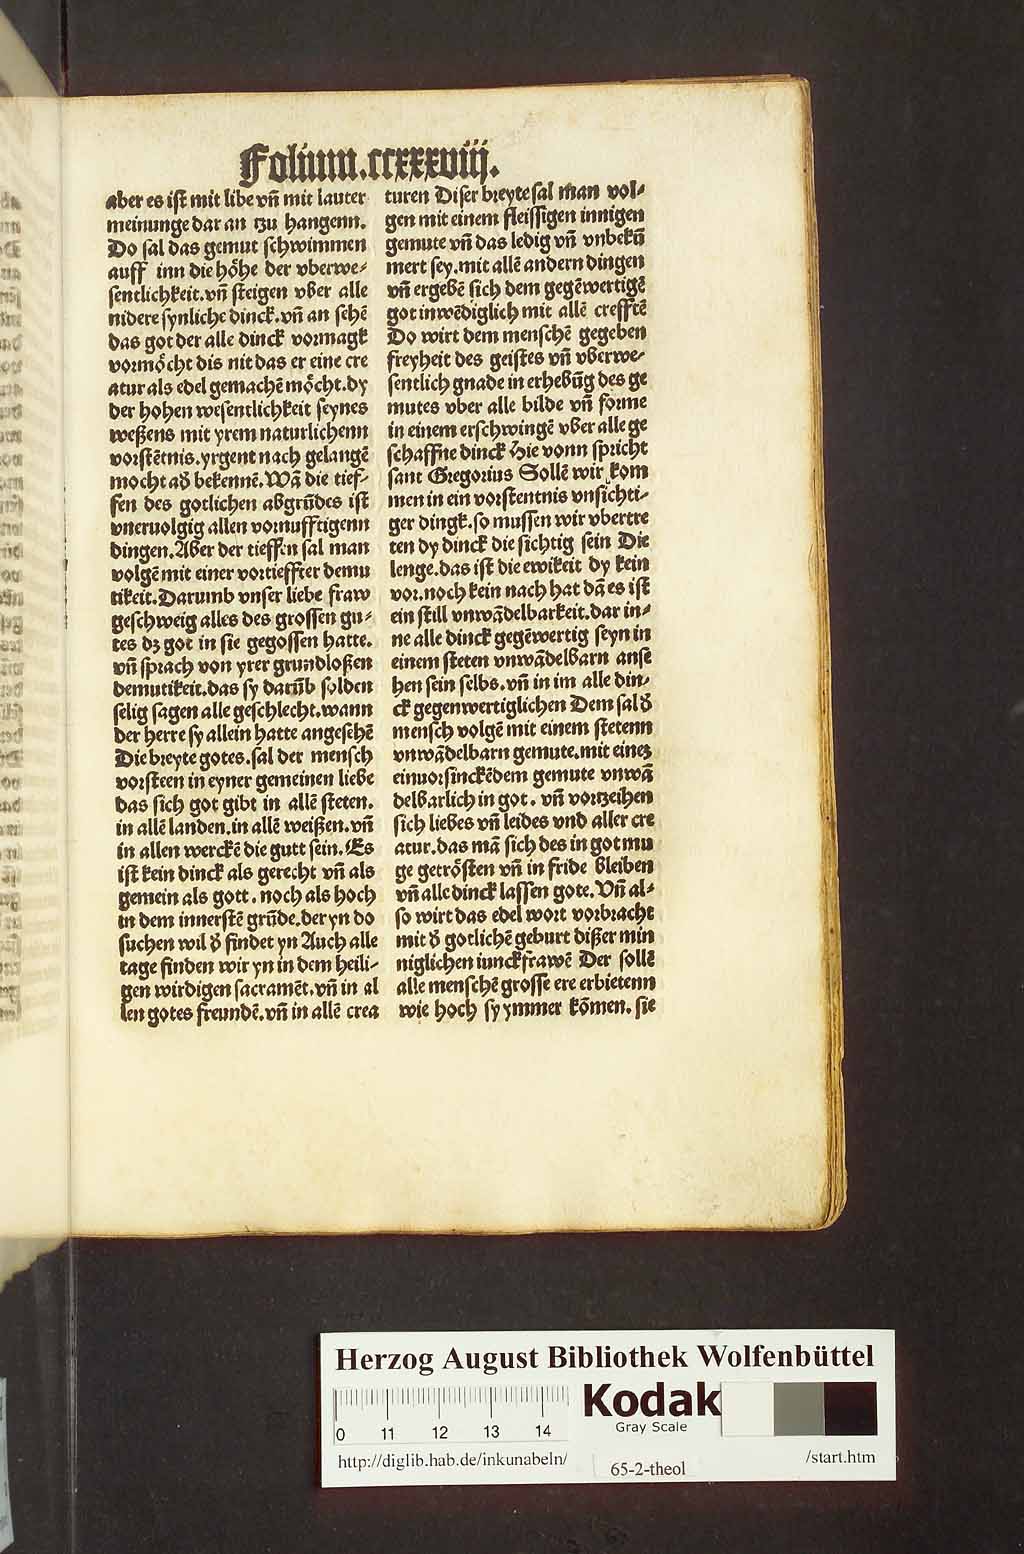 Folium.ccxxxviij.
aber es ist mit libe vñ mit lauter
meinunge dar an tzu hangenn.
Do sal das gemut schwimmen
auff inn die hőhe der vberwe-
sentlichkeit.vñ steigen vber alle
nidere synliche dinck.vñ an sehē
das got der alle dinck vormagk
vormőcht dis nit das er eine cre
atur als edel gemachē mőcht.dy
der hohen wesentlichkeit seynes
weßens mit yrem naturlichenn
vorstētnis.yrgent nach gelangē
mocht ad̕ bekennē.Wā die tief-
fen des gotlichen abgrūdes ist
vneruolgig allen vornufftigenn
dingen.Aber der tieffen sal man
volgē mit einer vortieffter demu
tikeit.Darumb vnser liebe fraw
geschweig alles des grossen gu-
tes dz got in sie gegossen hatte.
vñ sprach von yrer grundloßen
demutikeit.das sy darūb solden
selig sagen alle geschlecht.wann
der herre sy allein hatte angesehē
Die breyte gotes.sal der mensch
vorsteen in eyner gemeinen liebe
das sich got gibt in allē steten.
in allē landen.in allē weißen.vñ
in allen werckē die gutt sein.Es
ist kein dinck als gerecht vñ als
gemein als gott.noch als hoch
in dem innerstē grūde.der yn do
suchen wil d̕ findet yn Auch alle
tage finden wir yn in dem heili-
gen wirdigen sacramēt.vñ in al
len gotes freundē.vñ in allē crea
turen Diser breyte sal man vol-
gen mit einem fleissigen innigen
gemute vñ das ledig vñ vnbekū
mert sey.mit allē andern dingen
vñ ergebē sich dem gegēwertigē
got inwēdiglich mit allē crefftē
Do wirt dem menschē gegeben
freyheit des geistes vñ vberwe-
sentlich gnade in erhebūg des ge
mutes vber alle bilde vñ forme
in einem erschwingē vber alle ge
schaffne dinck Hie vonn spricht
sant Gregorius Sollē wir kom
men in ein vorstentnis vnsichti-
ger dingk.so mussen wir vbertre
ten dy dinck die sichtig sein Die
lenge.das ist die ewikeit dy kein
vor.noch kein nach hat dā es ist
ein still vnwādelbarkeit.dar in-
ne alle dinck gegēwertig seyn in
einem steten vnwādelbarn anse
hen sein selbs.vñ in im alle din-
ck gegenwertiglichen Dem sal d̕
mensch volgē mit einem stetenn
vnwādelbarn gemute.mit einez
einuorsinckēdem gemute vnwā
delbarlich in got. vñ vortzeihen
sich liebes vñ leides vnd aller cre
atur.das mā sich des in got mu
ge getrősten vñ in fride bleiben
vñ alle dinck lassen gote.Vñ al-
so wirt das edel wort vorbracht
mit d̕ gotlichē geburt dißer min
niglichen iunckfrawē Der sollē
alle menschē grosse ere erbietenn
wie hoch sy ymmer kōmen.sie
Herzog August Bibliothek Wolfenbüttel
0 11 12 13 14
Kodak
Gray Scale
http://diglib.hab.de/inkunabeln/
65-2-theol
/start.htm